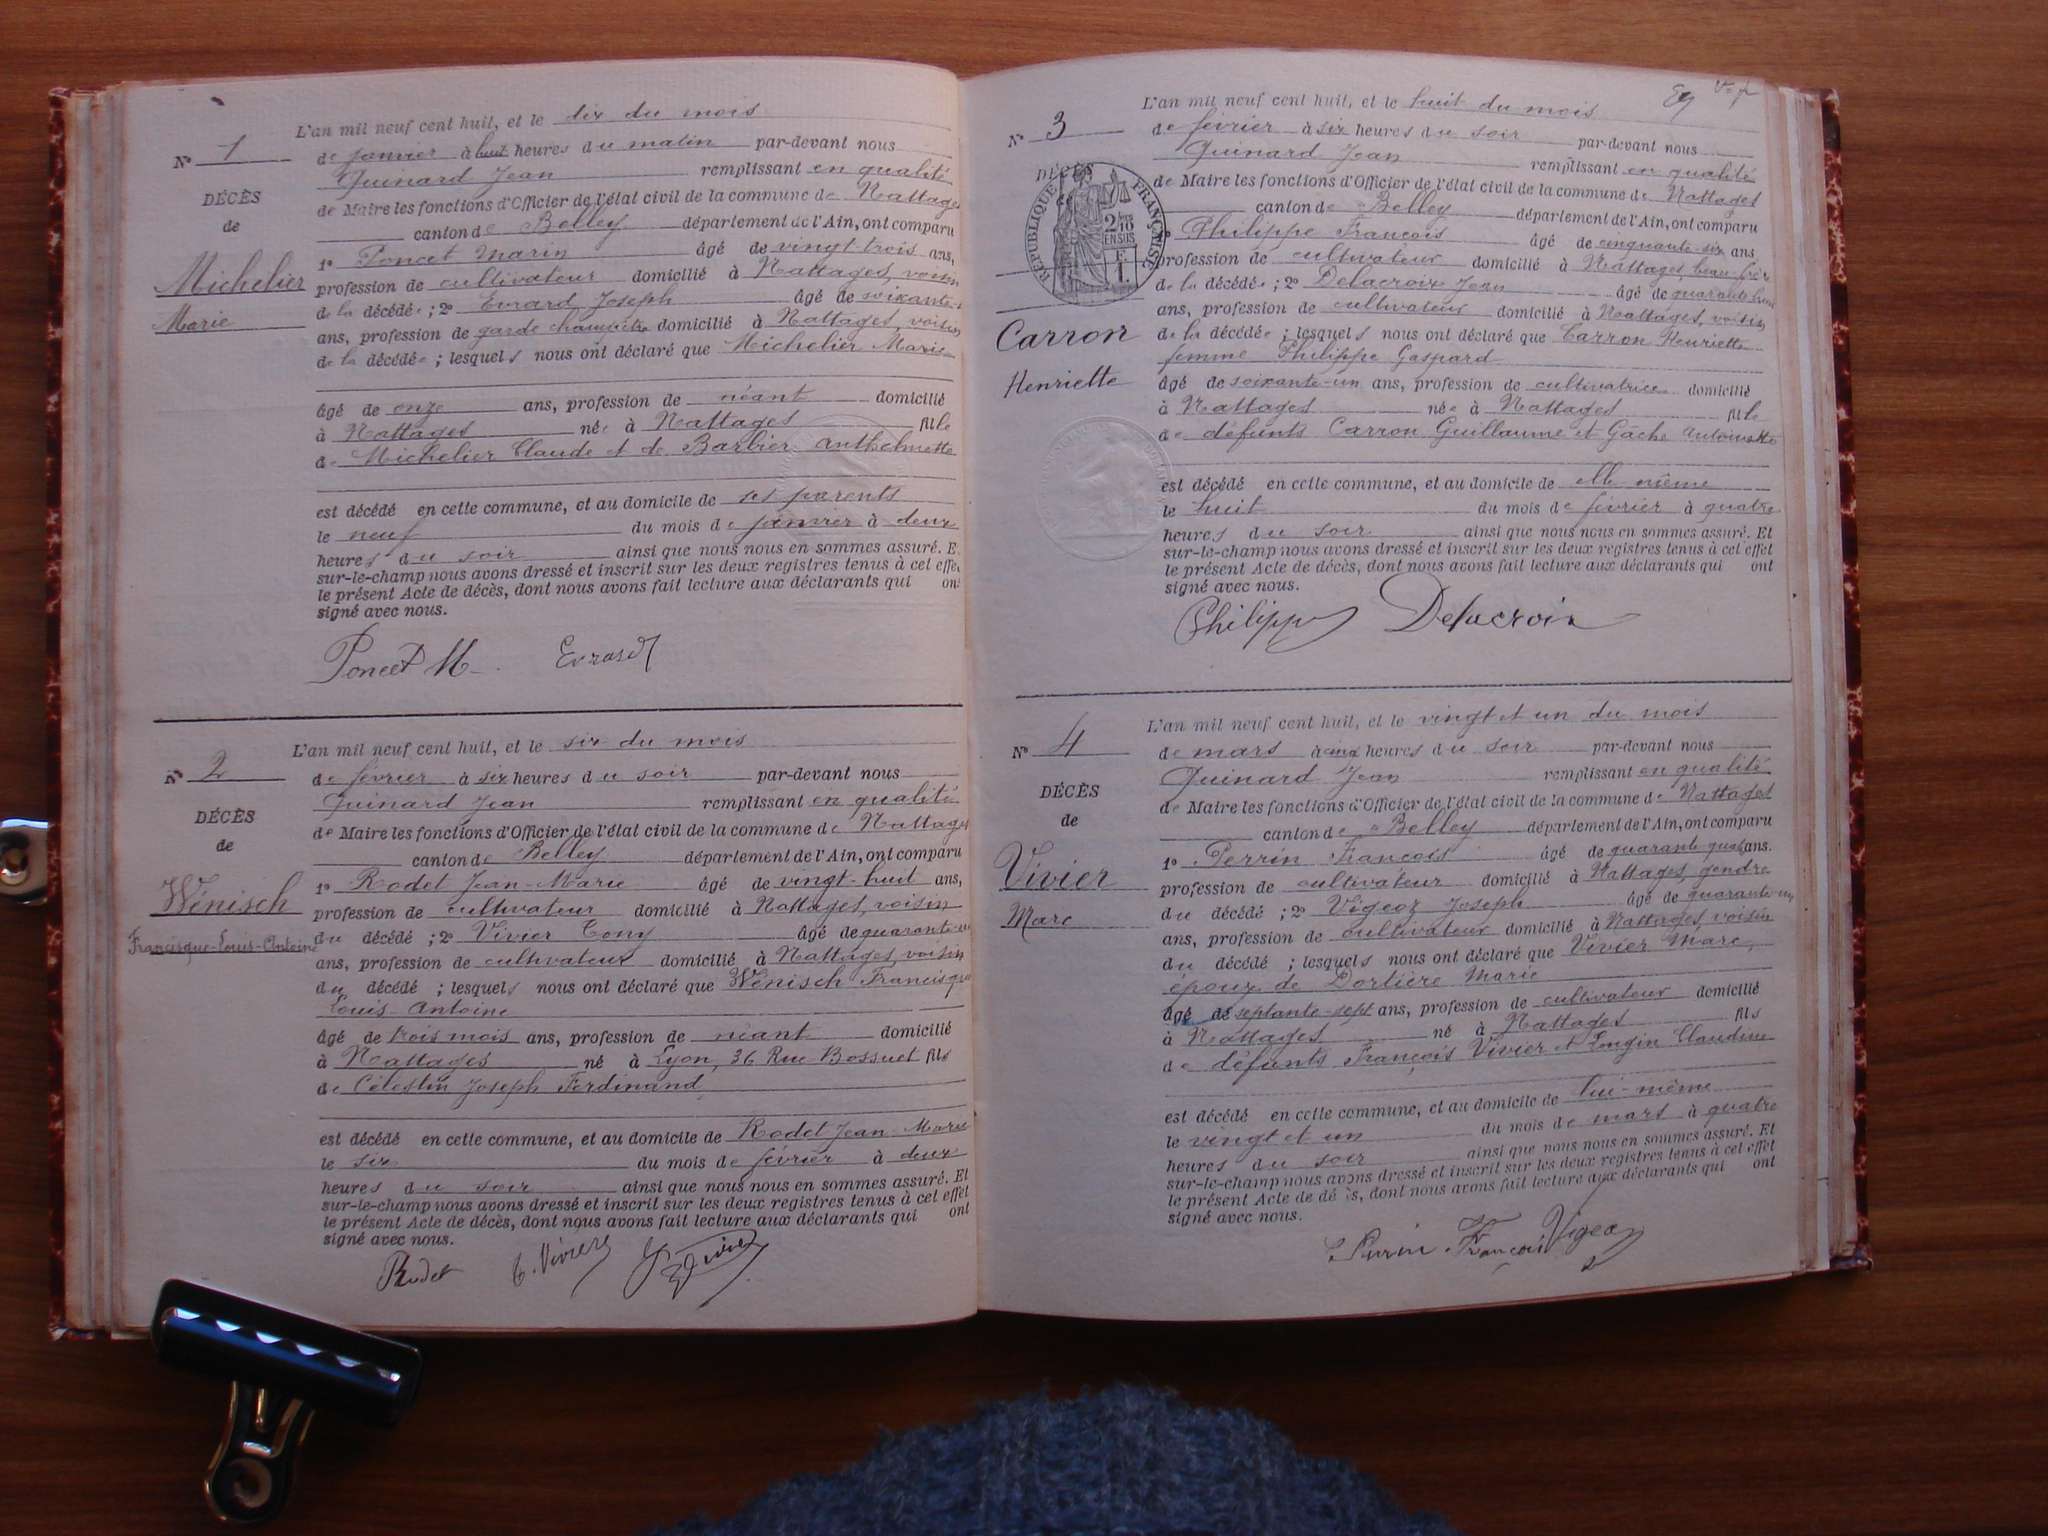 L'an mil neuf cent huit, et le dix du mois
N° 1 de janvier à huit heures du matin par-devant nous
Guinard Jean remplissant en qualité
DÉCÈS
de Maire les fonctions d'Officier de l'état civil de la commune de Nattages
de
canton de Belley département de l'Ain, ont comparu
1° Poncet Marin âgé de vingt-trois ans,
Michelier
profession de cultivateur domicilié à Nattages, voisin
Marie
de la décédée ; 2° Evrard Joseph âgé de soixante
ans, profession de garde champêtre domicilié à Nattages, voisin
de la décédée ; lesquels nous ont déclaré que Michelier Marie
âgé de onze ans, profession de néant domicilié
à Nattages née à Nattages fille
de Michelier Claude et de Barbier Anthelmette
est décédé en cette commune, et au domicile de ses parents
le neuf du mois de janvier à deux
heures du soir ainsi que nous nous en sommes assuré. E
sur-le-champ nous avons dressé et inscrit sur les deux registres tenus à cet effe
le présent Acte de décès, dont nous avons fait lecture aux déclarants qui ont
signé avec nous.
Poncet M Evrard
L'an mil neuf cent huit, et le six du mois
N° 2 de février à six heures du soir par-devant nous
Guinard Jean remplissant en qualité
DÉCÈS
de Maire les fonctions d'Officier de l'état civil de la commune de Nattages
de
canton de Belley département de l'Ain, ont comparu
1° Rodet Jean-Marie âgé de vingt-huit ans,
Wénisch
profession de cultivateur domicilié à Nattages, voisin
Francisque-Louis-Antoine
du décédé ; 2° Vivier Tony âgé de quarante-un
ans, profession de cultivateur domicilié à Nattages, voisin
du décédé ; lesquels nous ont déclaré que Wénisch Francisque
Louis Antoine
âgé de trois mois ans, profession de néant domicilié
à Nattages né à Lyon, 36 Rue Bossuet fils
de Célestin Joseph Ferdinand
est décédé en cette commune, et au domicile de Rodet Jean-Marie
le six du mois de février à deux
heures du soir ainsi que nous nous en sommes assuré. Et
sur-le-champ nous avons dressé et inscrit sur les deux registres tenus à cet effet
le présent Acte de décès, dont nous avons fait lecture aux déclarants qui ont
signé avec nous.
Rodet T. Vivier
L'an mil neuf cent huit, et le huit du mois
N° 3 de février à six heures du soir par-devant nous
Guinard Jean remplissant en qualité
DÉCÈS
RÉPUBLIQUE FRANÇAISE
2/10 EN SUS
de Maire les fonctions d'Officier de l'état civil de la commune de Nattages
canton de Belley département de l'Ain, ont comparu
1° Philippe François âgé de cinquante-six ans
profession de cultivateur domicilié à Nattages, beau-frère
de la décédée ; 2° Delacroix Jean âgé de quarante-huit
ans, profession de cultivateur domicilié à Nattages, voisin
Carron
de la décédée ; lesquels nous ont déclaré que Carron Henriette
femme Philippe Gaspard
Henriette
âgé de soixante-un ans, profession de cultivatrice domicilié
à Nattages née à Nattages fille
de défunts Carron Guillaume et Gâche Antoinette
est décédé en cette commune, et au domicile de elle même
le huit du mois de février à quatre
heures du soir ainsi que nous nous en sommes assuré. Et
sur-le-champ nous avons dressé et inscrit sur les deux registres tenus à cet effet
le présent Acte de décès, dont nous avons fait lecture aux déclarants qui ont
signé avec nous.
Philippe Delacroix
L'an mil neuf cent huit, et le vingt et un du mois
N° 4 de mars à cinq heures du soir par-devant nous
Guinard Jean remplissant en qualité
DÉCÈS
de Maire les fonctions d'Officier de l'état civil de la commune de Nattages
de
canton de Belley département de l'Ain, ont comparu
1° Perrin François âgé de quarante quatre ans.
Vivier
profession de cultivateur domicilié à Nattages, gendre
Marc
du décédé ; 2° Vigeoz Joseph âgé de quarante-un
ans, profession de cultivateur domicilié à Nattages, voisin
du décédé ; lesquels nous ont déclaré que Vivier Marc,
époux de Dortière Marie
âgé de septante-sept ans, profession de cultivateur domicilié
à Nattages né à Nattages fils
de défunts François Vivier et Claudine
est décédé en cette commune, et au domicile de lui-même
le vingt et un du mois de mars à quatre
heures du soir ainsi que nous nous en sommes assuré. Et
sur-le-champ nous avons dressé et inscrit sur les deux registres tenus à cet effet
le présent Acte de décès, dont nous avons fait lecture aux déclarants qui ont
signé avec nous.
Perrin François Vigeoz